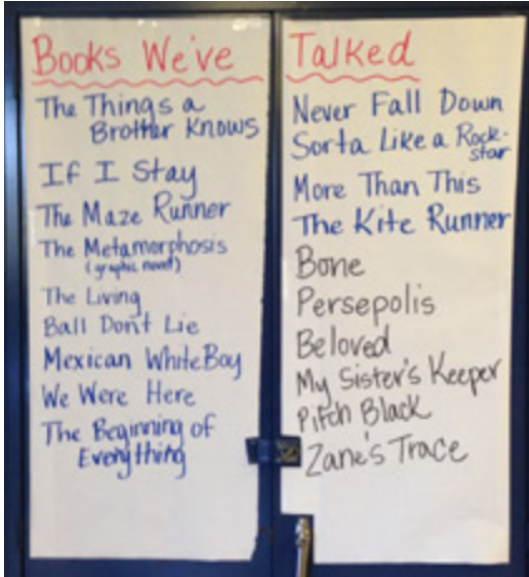 Books We've
The Things a
Brother Knows
If I Stay
The Maze Runner
The Metamorphosis
(graphic novel)
The Living
Ball Don't Lie
Mexican WhiteBoy
We Were Here
The Beginning of
Everything
Talked
Never Fall Down
Sorta Like a Rock-
star
More Than This
The Kite Runner
Bone
Persepolis
Beloved
My Sister's Keeper
Pitch Black
Zane's Trace